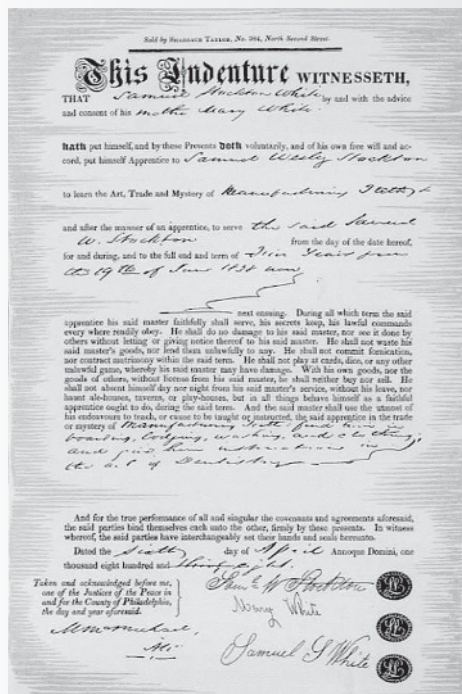 Sold by Shadrach Taylor, No. 264, North Second Street.
This Indenture WITNESSETH,
THAT Samuel Stockton White by and with the advice
and consent of his mother Mary White.
hath put himself, and by these Presents doth voluntarily, and of his own free will and ac-
cord, put himself Apprentice to Samuel Wesley Stockton
to learn the Art, Trade and Mystery of Manufacturing Teeth
and after the manner of an apprentice, to serve the said Samuel
W. Stockton from the day of the date hereof,
for and during, and to the full end and term of Years from
the 19th of June 1838 now
next ensuing. During all which term the said
apprentice his said master faithfully shall serve, his secrets keep, his lawful commands
every where readily obey. He shall do no damage to his said master, nor see it done by
others without letting or giving notice thereof to his said master. He shall not waste his
said master's goods, nor lend them unlawfully to any. He shall not commit fornication,
nor contract matrimony within the said term. He shall not play at cards, dice, or any other
unlawful game, whereby his said master may have damage. With his own goods, nor the
goods of others, without license from his said master, he shall neither buy nor sell. He
shall not absent himself day nor night from his said master's service, without his leave, nor
haunt ale-houses, taverns, or play-houses, but in all things behave himself as a faithful
apprentice ought to do, during the said term. And the said master shall use the utmost of
his endeavours to teach, or cause to be taught or instructed, the said apprentice in the trade
or mystery of Manufacturing Teeth find him in
boarding, lodging, washing, and clothing,
and give him instructions in
the art of Dentistry
And for the true performance of all and singular the covenants and agreements aforesaid,
the said parties bind themselves each unto the other, firmly by these presents. In witness
whereof, the said parties have interchangeably set their hands and seals hereunto.
Dated the sixth day of April Annoque Domini, one
thousand eight hundred and thirty eight.
Taken and acknowledged before me,
one of the Justices of the Peace in
and for the County of Philadelphia,
the day and year aforesaid.
Saml W Stockton
Mary White
M McMichael
Ald.
Samuel S White